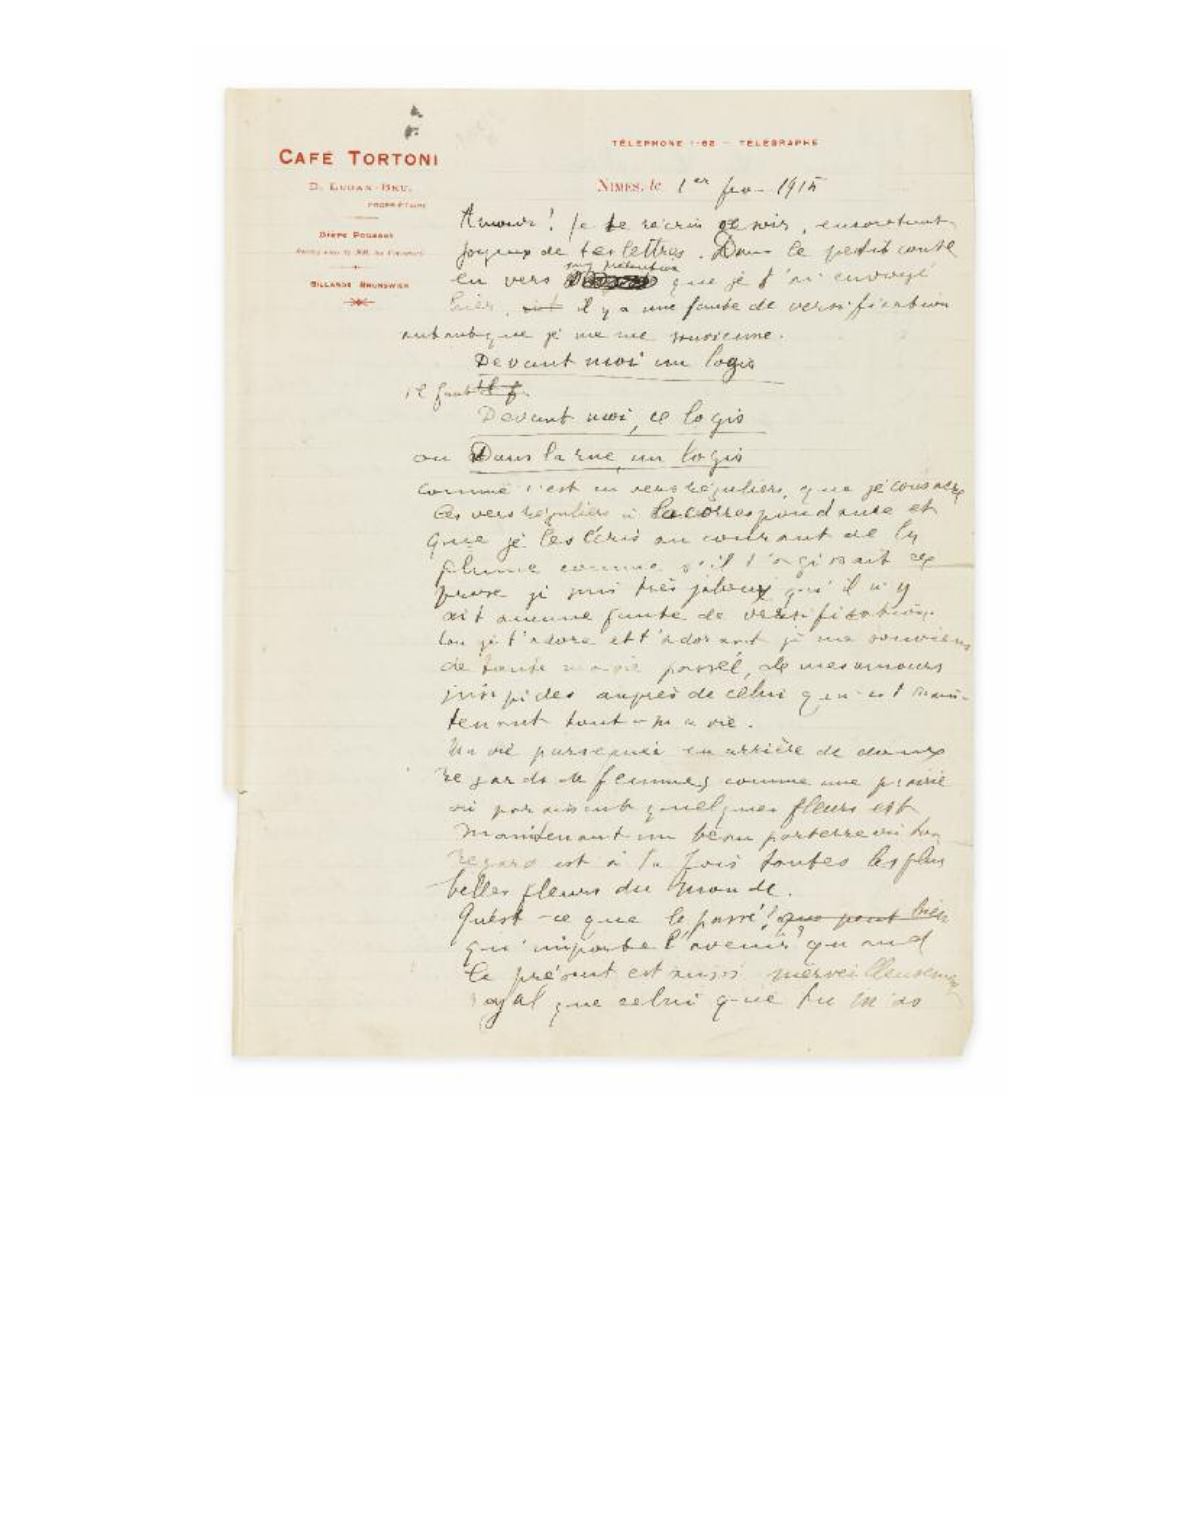 CAFÉ TORTONI
TÉLÉPHONE 1-62 — TÉLÉGRAPHE
PROPRIÉTAIRE
NIMES, le 1er fev 1915
BILLARDS BRUNSWICK
Amour! Je te récris ce soir, encore tout
joyeux de tes lettres. Dans le petit conte
sans prétention
en vers que je t'ai envoyé
hier, il y a une faute de versification
autant que je me souvienne.
Devant moi un logis
il faut
Devant moi, ce logis
ou Dans la rue, un logis
comme c'est en vers réguliers, que je consacre
les vers réguliers à la correspondance et
que je les écris au courant de la
plume comme s'il s'agissait de
prose je suis très jaloux qu'il n'y
ait aucune faute de versification.
Lou je t'adore et t'adorant je me souviens
de toute ma vie passée, de mes amours
insipides auprès de celui qui est main-
tenant toute ma vie.
Ma vie parsemée en arrière de doux
regards de femmes comme une prairie
où paraissent quelques fleurs est
maintenant un beau parterre où ton
regard est à la fois toutes les plus
belles fleurs du monde.
Qu'est-ce que le passé! que peut bien
qu'importe l'avenir? quand
le présent est aussi merveilleusement
royal que celui que tu m'as